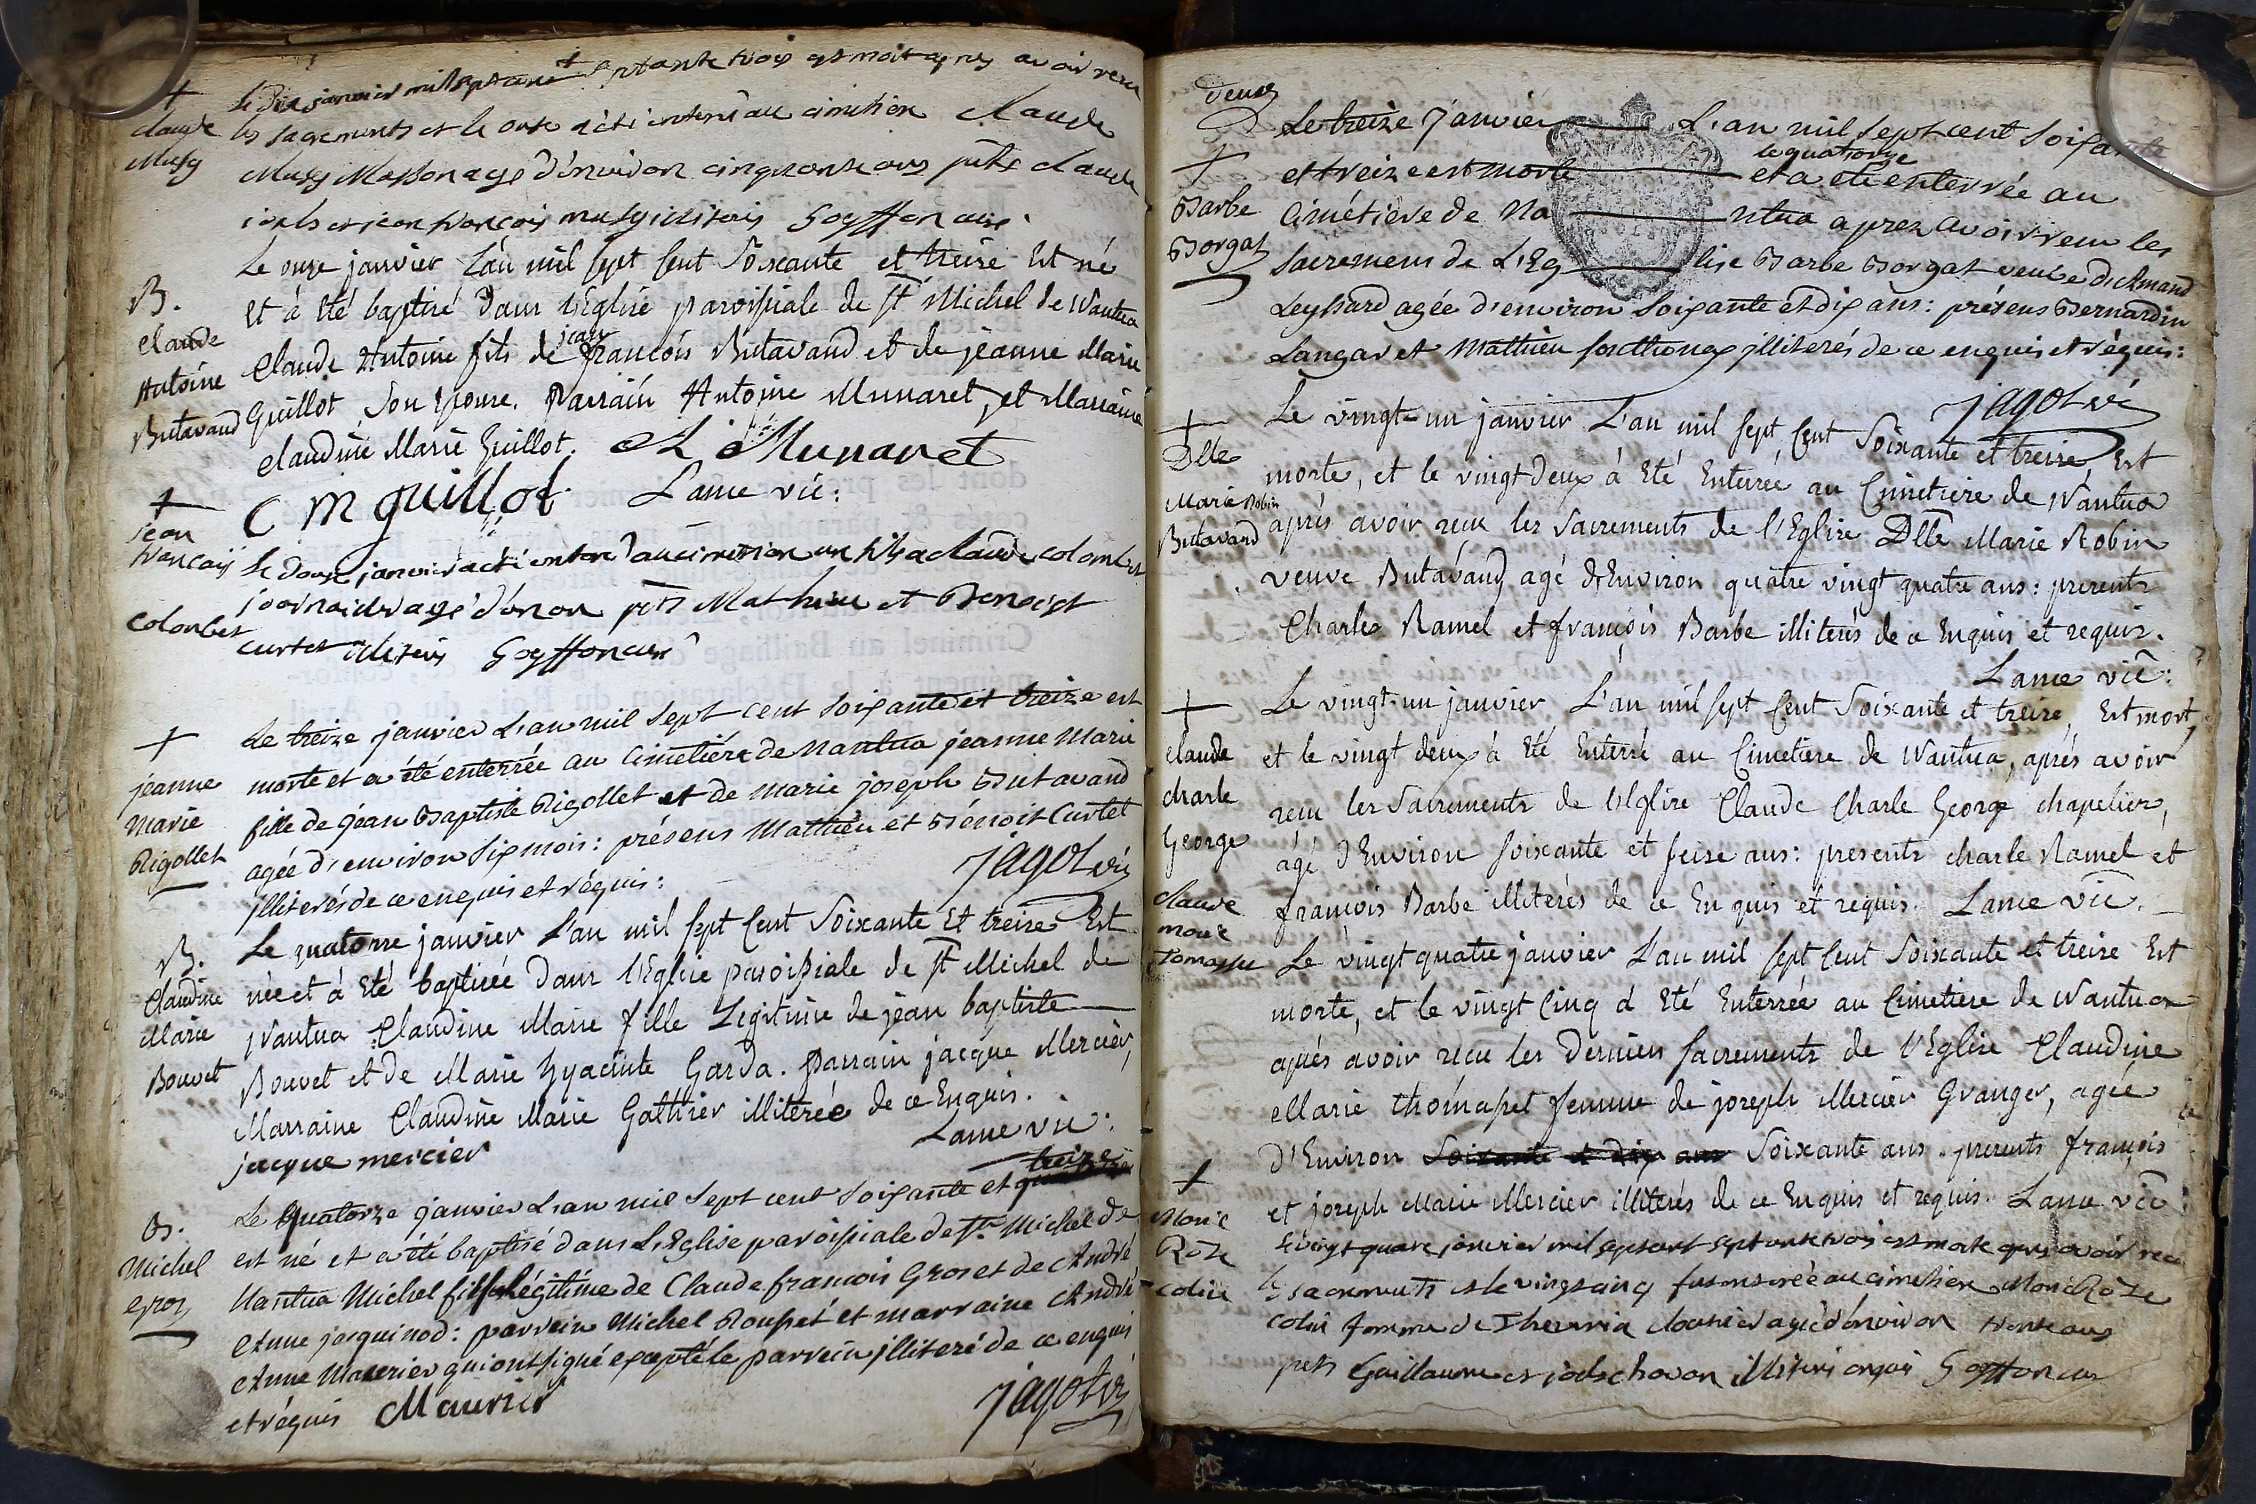 +
claude
Musy
Le dix janvier mil sept cent septante trois est mort apres avoir recu
les sacrements et le onze a été enterré au cimetiere claude
Musy Masson agé d'environ cinquante ans pnts claude
et jean françois musy illiterés Goyffon curé
B.
Claude
Antoine
Butavand
Le onze janvier L'an mil sept cent Soixante et treize Est né
et à été baptisé dans l'Eglise paroissiale de st Michel de Nantua
Claude Antoine fils de jean françois Butavand et de jeanne Marie
Guillot son Epouse. Parrain Antoine Munaret, et Marraine
claudine Marie Guillot. A Munaret
C m guillot Lame vic:
+
jean
francois
colombet
Le douze janvier a été enterré au cimetiere un fils a claude colombet
journalier agé d'un an pnts Mathieu et Benoigt
curtet illiterés Goyffon curé
+
jeanne
Marie
Rigollet
Le treize janvier L'an mil sept cent soixante et treize est
morte et a été enterrée au cimetiére de Nantua jeanne Marie
fille de jéan Baptiste Rigollet et de Marie joseph Butavand
agée d'environ six mois: présens Mathieu et Bénoit Curtet
jlliterés de ce enquis et réquis:
jagot vic
B.
Claudine
Marie
Bouvet
Le quatorze janvier L'an mil sept cent Soixante Et treize Est
née et à été baptisée dans l'Eglise paroissiale de st Michel de
Nantua Claudine Marie fille Legitime de jean baptiste
Bouvet et de Marie hyacinte Garda. parrain jacque Mercier,
Marraine Claudine Marie Gathier illiterée de ce Enquis.
jacque mercier Lame vic:
B.
Michel
Gros
Le quatorze janvier L'an mil sept cent soixante et treize
est né et a été baptisé dans L'Eglise paroissiale de St Michel de
Nantua Michel fils légitime de Claude françois Gros et de André
Anne jacquinod: parrein Michel Rousset et marraine André
Anne Maurier qui ont signé excepté le parrein jlliteré de ce enquis
et réquis Maurier jagot vic
deux
+
Barbe
Borgat
Le treize janvier L'an mil sept cent soixante
et treize est morte le quatorze et a été enterrée au
Cimétiére de Nantua aprez avoir recu les
sacremens de L'Eglise Barbe Borgat veuve d'Amand
Leyssard agée d'environ soixante et dix ans: présens Bernardin
Langar et Mathieu jlliterés de ce enquis et réquis:
jagot vic
+
Dlle
Marie Robin
Butavand
Le vingt-un janvier L'an mil sept cent Soixante et treize, Est
morte, et le vingt deux à Eté Enterrée au Cimetiere de Nantua
après avoir reçu les Sacrements de l'Eglise Dlle Marie Robin
veuve Butavand, agé d'Environ quatre vingt quatre ans: presents
Charles Ramel et françois Barbe illiterés de ce Enquis et requis.
Lame vic:
+
claude
charle
George
Le vingt-un janvier L'an mil sept Cent Soixante et treize, Est mort,
et le vingt deux à Eté Enterré au Cimetiere de Nantua, après avoir
reçu les Sacrements de l'Eglise Claude Charle George chapelier,
agé d'Environ soixante et seize ans: presents charle Ramel et
françois Barbe illiterés de ce Enquis et requis. Lame vic.
claude
marie
Tomasset
Le vingt quatre janvier L'an mil sept Cent Soixante et treize Est
morte, et le vingt Cinq à Eté Enterrée au Cimetiere de Nantua
après avoir reçu les derniers sacrements de l'Eglise Claudine
Marie thomasset femme de joseph Mercier Granger, agée
d'Environ Soixante et dix ans Soixante ans. presents françois
et joseph Marie Mercier illiterés de ce Enquis et requis. Lame vic:
+
Marie
Roze
colin
Le vingt quatre janvier mil sept cent septante trois est morte apres avoir recu
les sacrements et le vingt cinq fut enterrée au cimetiere Marie Roze
colin femme de cloutier agée d'environ trente ans
pnts Guillaume et chavan illiterés enquis Goyffon curé